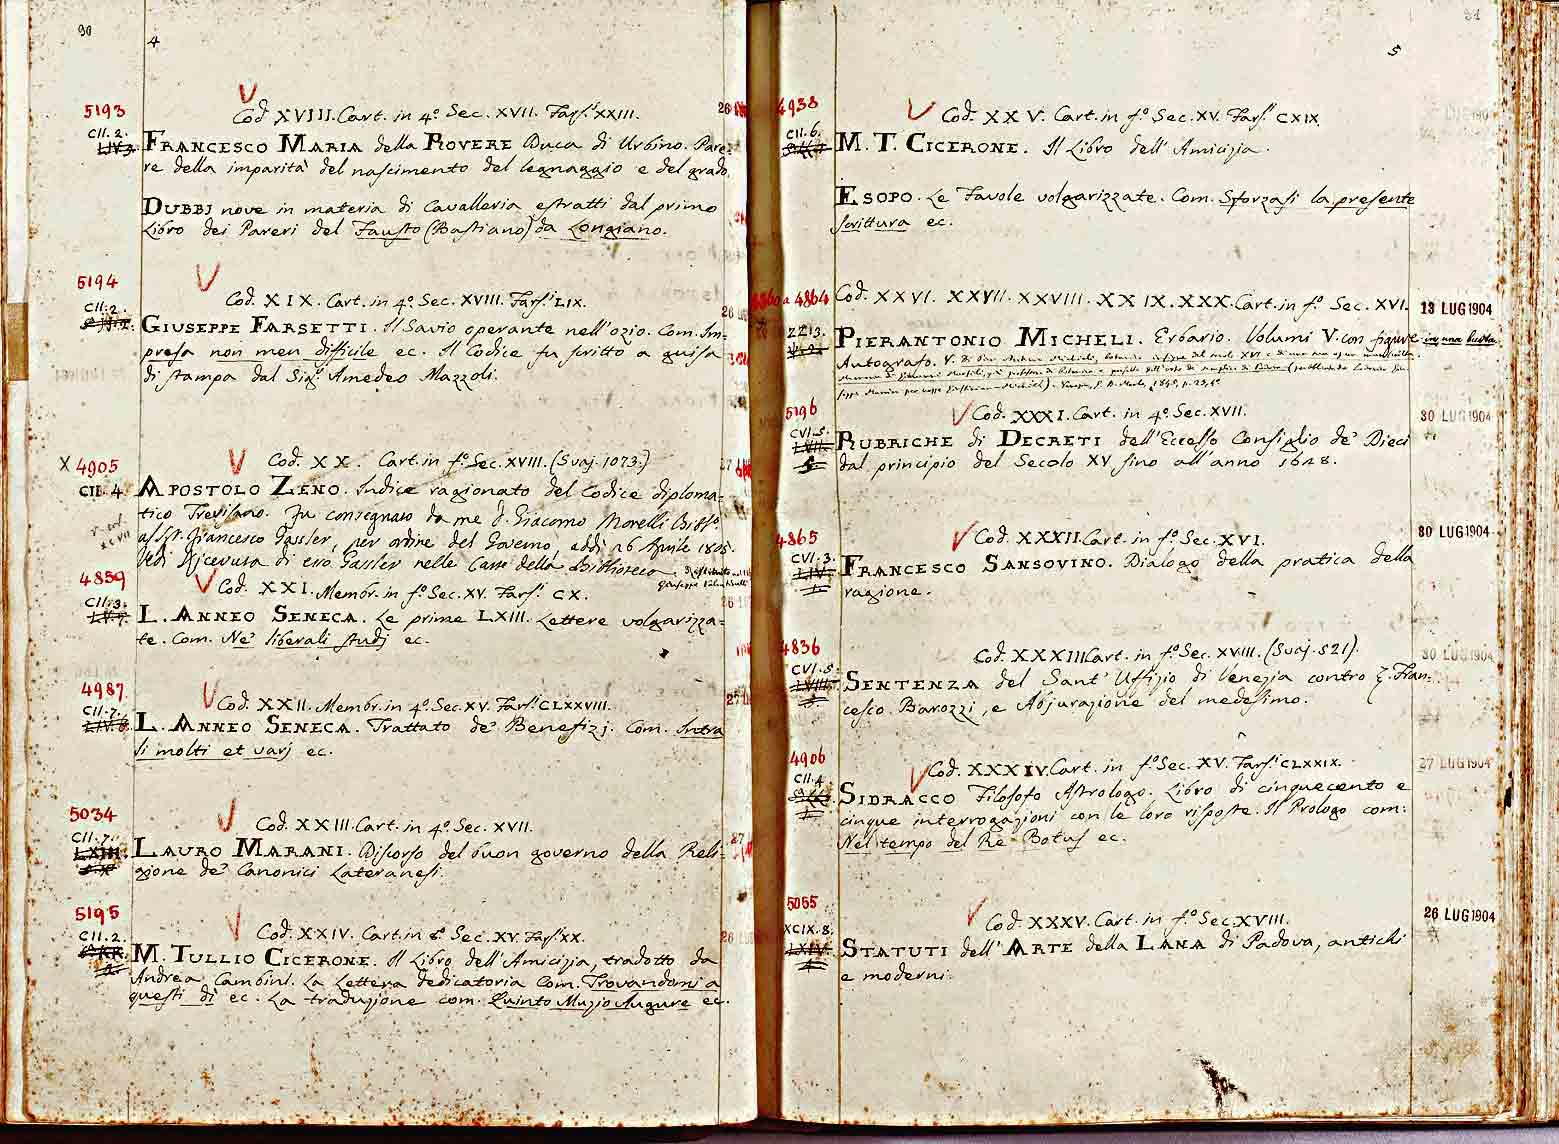 90
4
5193
Cod. XVIII. Cart. in 4.º Sec. XVII. Fars.i XXIII.
CII. 2.
FRANCESCO MARIA della ROVERE Duca di Urbino. Pare=
re della imparità del nascimento del legnaggio e del grado.
DUBBJ nove in materia di Cavalleria estratti dal primo
Libro dei Pareri del Fausto (Bastiano) da Longiano.
5194
Cod. XIX. Cart. in 4.º Sec. XVIII. Fars.i LIX.
CII. 2.
GIUSEPPE FARSETTI. Il Savio operante nell'ozio. Com. Im=
presa non men difficile ec. Il Codice fu scritto a guisa
di stampa dal Sig.r Amedeo Mazzoli.
X 4905
Cod. XX. Cart. in f.º Sec. XVIII. (Svaj. 1073.)
CII. 4.
APOSTOLO ZENO. Indice ragionato del Codice diploma=
tico Trevisano. Fu consegnato da me D. Giacomo Morelli Bibl.º
al Sr. Francesco Gassler, per ordine del Governo, addì 26 Aprile 1805.
Vedi Ricevuta di esso Gassler nelle Carte della Biblioteca
4859
Cod. XXI. Membr. in f.º Sec. XV. Fars.i CX.
CII. 3.
L. ANNEO SENECA. Le prime LXIII. Lettere volgarizza=
te. Com. Ne' liberali studj ec.
4987
Cod. XXII. Membr. in 4.º Sec. XV. Fars.i CLXXVIII.
CII. 7.
L. ANNEO SENECA. Trattato de' Benefizj. Com. Intra
li molti et varj ec.
5034
Cod. XXIII. Cart. in 4.º Sec. XVII.
CII. 7.
LAURO MARANI. Discorso del buon governo della Reli=
gione de' Canonici Lateranesi.
5195
Cod. XXIV. Cart. in 8.º Sec. XV. Fars.i XX.
CII. 2.
M. TULLIO CICERONE. Il Libro dell'Amicizia, tradotto da
Andrea Cambini. La Lettera dedicatoria Com. Trovandomi a
questi dì ec. La traduzione com. Quinto Muzio Augure ec.
91
5
4938
Cod. XXV. Cart. in f.º Sec. XV. Fars.i CXIX.
CII. 6.
M. T. CICERONE. Il Libro dell'Amicizia.
ESOPO. Le Favole volgarizzate. Com. Sforzasi la presente
scrittura ec.
4860 a 4864
Cod. XXVI. XXVII. XXVIII. XXIX. XXX. Cart. in f.º Sec. XVI.
13 LUG 1904
ZZ 13.
PIERANTONIO MICHELI. Erbario. Volumi V. con figure
in una busta
Autografo.
5196
Cod. XXXI. Cart. in 4.º Sec. XVII.
30 LUG 1904
CVI. 5.
RUBRICHE di DECRETI dell'Eccelso Consiglio de' Dieci
dal principio del Secolo XV fino all'anno 1628.
4865
Cod. XXXII. Cart. in f.º Sec. XVI.
30 LUG 1904
CVI. 3.
FRANCESCO SANSOVINO. Dialogo della pratica della
ragione.
4836
Cod. XXXIII. Cart. in f.º Sec. XVIII. (Svaj. 521).
30 LUG 1904
CVI. 5.
SENTENZA del Sant' Uffizio di Venezia contro Fran=
cesco Barozzi, e Abjurazione del medesimo.
4906
Cod. XXXIV. Cart. in f.º Sec. XV. Fars.i CLXXIX.
27 LUG 1904
CII. 4
SIDRACCO Filosofo Astrologo. Libro di cinquecento e
cinque interrogazioni con le loro risposte. Il Prologo com:
Nel tempo del Re Botus ec.
5055
Cod. XXXV. Cart. in f.º Sec. XVIII.
26 LUG 1904
XCIX. 8.
STATUTI dell'ARTE della LANA di Padova, antichi
e moderni.